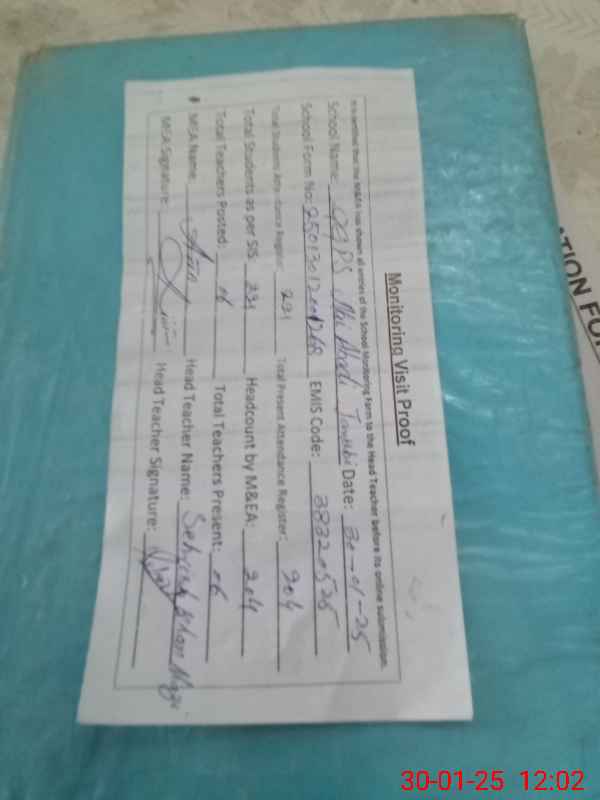 Monitoring Visit Proof
It is certified that the M&EA has shown all entries of the School Monitoring Form to the Head Teacher before its online submission.
School Name: GGPS Date: 30-01-25
School Form No: EMIS Code: 38320526
Total Students Attendance Register: 231 Total Present Attendance Register: 204
Total Students as per SIS: 231 Headcount by M&EA: 204
Total Teachers Posted: 06 Total Teachers Present: 06
MEA Name: Head Teacher Name: Sehrish Khan
MEA Signature: Head Teacher Signature:
30-01-25 12:02